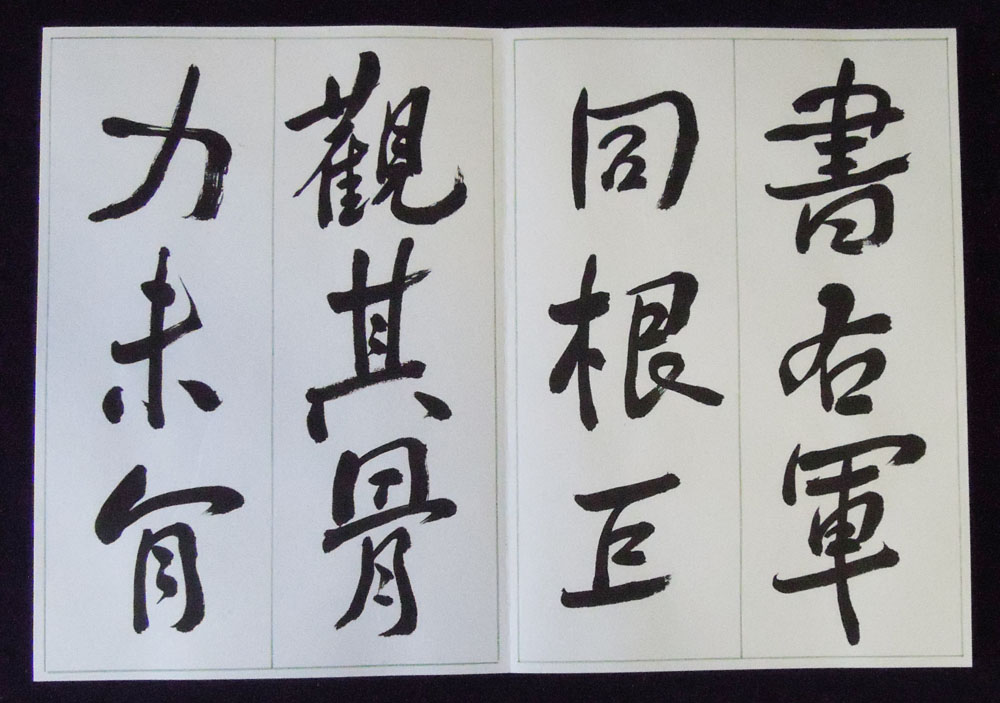 書右軍
同根巨
觀其骨
力未有